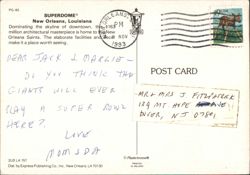 PG-83
SUPERDOME
New Orleans, Louisiana
Dominating the skyline of downtown, this
million architectural masterpiece is home to the New
Orleans Saints. The elaborate facilities and
make it a place worth seeing.
PM
NOV
1993
DEAR JACK & MARGIE -
DO YOU THINK THE
GIANTS WILL EVER
PLAY A SUPER BOWL
HERE?
LOVE
MOM & DA
POST CARD
MR & MRS J. FITZPATRICK
129 MT HOPE
DOVER, N.J. 07801
Dist. by Express Publishing Co., Inc., New Orleans, LA